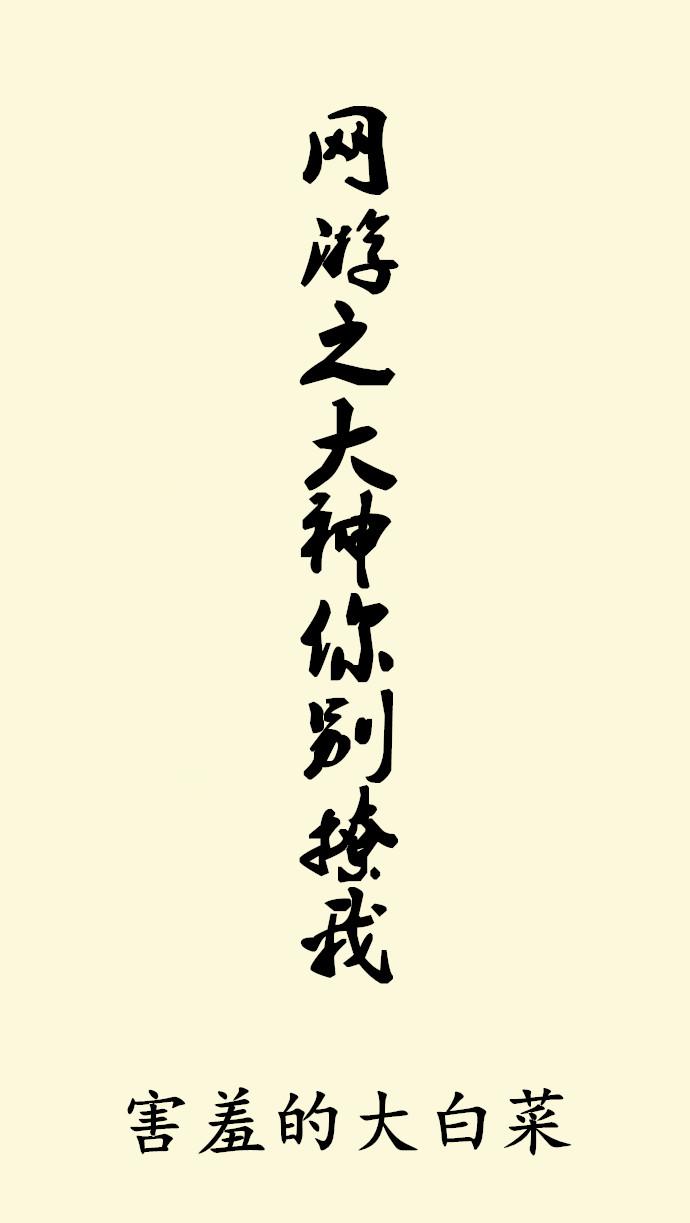 网游之大神你别撩我
害羞的大白菜